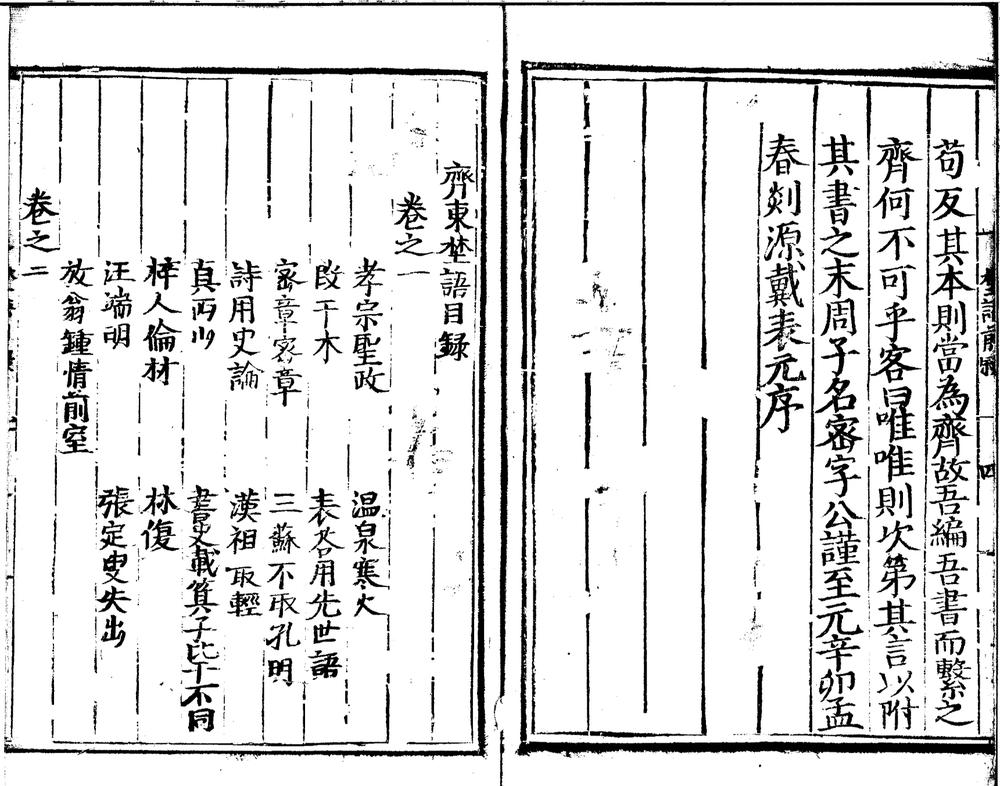 苟反其本則當為齊故吾編吾書而繫之
齊何不可乎客曰唯唯則次第其言以附
其書之末周子名密字公謹至元辛卯孟
春剡源戴表元序
齊東埜語目録
卷之一
孝宗聖政　温泉寒火
段干木　表荅用先世語
密章宻章　三蘇不取孔明
詩用史論　漢祖取輕
真西山　書史載箕子比干不同
梓人掄材　林復
汪端明　張定叟失出
放翁鍾情前室
卷之二